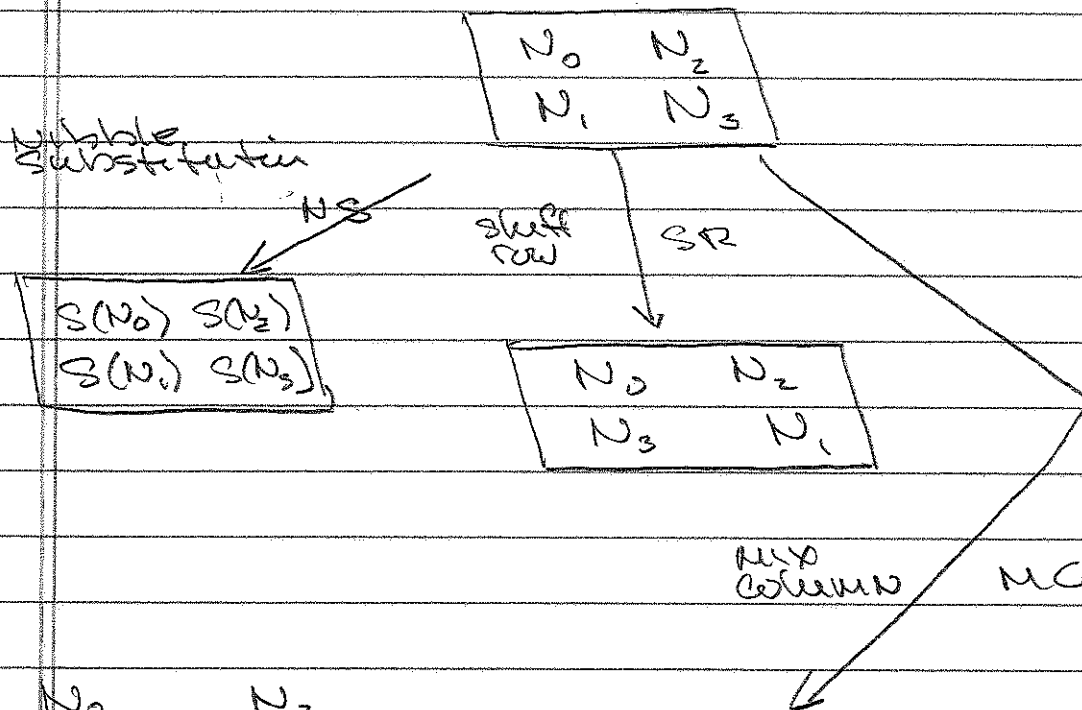 N₀ N₂
N₁ N₃
Nibble
Substitution
NS
shift
row
SR
S(N₀) S(N₂)
S(N₁) S(N₃)
N₀ N₂
N₃ N₁
Mix
column
MC
N₀ N₂